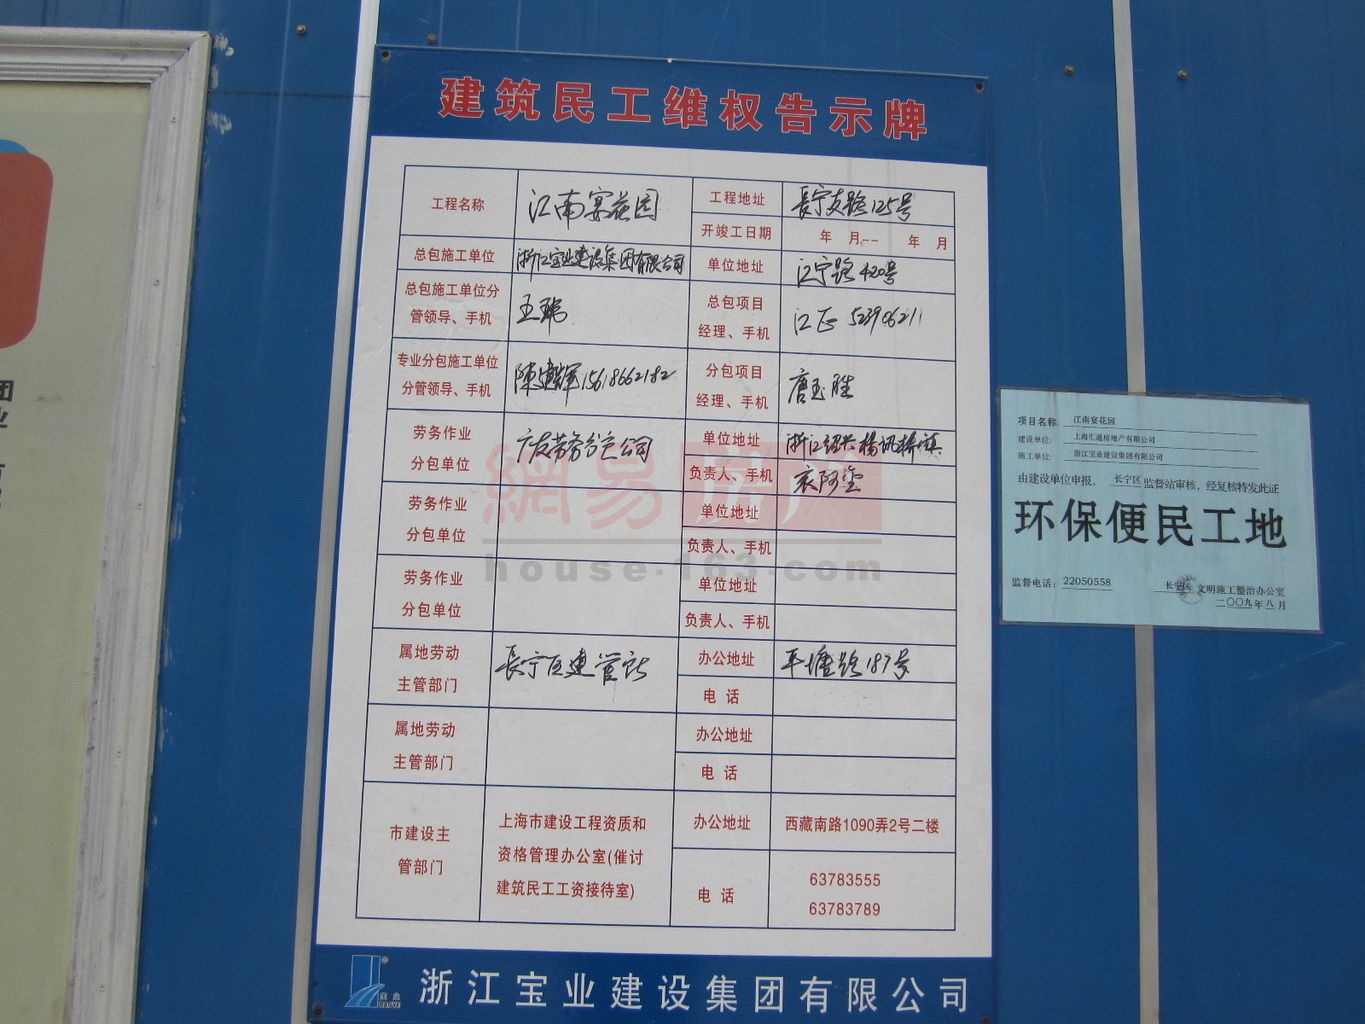 建筑民工维权告示牌
工程名称 江南宴花园 工程地址 長宁支路125号
开竣工日期 年 月-- 年 月
总包施工单位 浙江宝业建设集团有限公司 单位地址 江宁路420号
总包施工单位分管领导、手机 王瑞 总包项目经理、手机 江正 52390621
专业分包施工单位分管领导、手机 陳建軍 15618662182 分包项目经理、手机 唐玉胜
劳务作业分包单位 广友劳务分包公司 单位地址 浙江绍兴杨汛桥镇
负责人、手机
劳务作业分包单位 单位地址
负责人、手机
劳务作业分包单位 单位地址
负责人、手机
属地劳动主管部门 長宁区建管站 办公地址 平塘路187号
电 话
属地劳动主管部门 办公地址
电 话
市建设主管部门 上海市建设工程资质和资格管理办公室(催讨建筑民工工资接待室) 办公地址 西藏南路1090弄2号二楼
电 话 63783555
63783789
宝业
BAOYE
浙江宝业建设集团有限公司
網易房产
house·163.com
项目名称: 江南宴花园
建设单位: 上海汇通房地产有限公司
施工单位: 浙江宝业建设集团有限公司
由建设单位申报、长宁区监督站审核、经复核特发此证
环保便民工地
监督电话: 22050558
长宁区文明施工整治办公室
二〇〇九年八月